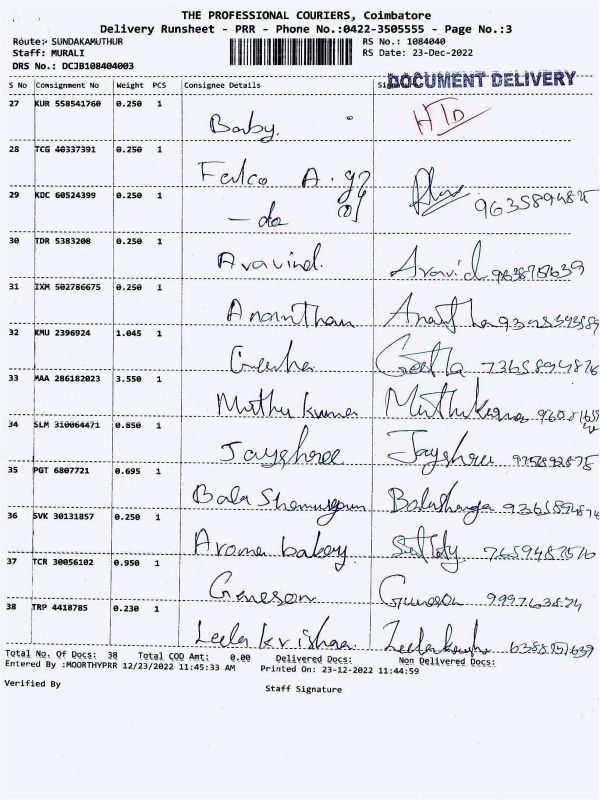 THE PROFESSIONAL COURIERS, Coimbatore
Delivery Runsheet - PRR - Phone No.:0422-3505555 - Page No.:3
Route:- SUNDAKAMUTHUR RS No.: 1084040
Staff: MURALI RS Date: 23-Dec-2022
DRS No.: DCJB108404003
DOCUMENT DELIVERY
S No Consignment No Weight PCS Consignee Details
27 KUR 558541760 0.250 1
Baby.
28 TCG 40337391 0.250 1
Falco A.
29 KDC 60524399 0.250 1
- do
30 TDR 5383208 0.250 1
Aravind. Aravid
31 IXM 502786675 0.250 1
Ananthan
32 KMU 2396924 1.045 1
Geetha Geetha 7365894876
33 MAA 286182023 3.550 1
Muthu kumar Muthukumar
34 SLM 310064471 0.850 1
Jayshree Jayshree
35 PGT 6807721 0.695 1
36 SVK 30131857 0.250 1
Aroma bakery
37 TCR 30056102 0.950 1
Ganesan
38 TRP 4418785 0.230 1
Leela krishna
Total No. Of Docs: 38 Total COD Amt: 0.00 Delivered Docs: Non Delivered Docs:
Entered By :MOORTHYPRR 12/23/2022 11:45:33 AM Printed On: 23-12-2022 11:44:59
Verified By Staff Signature